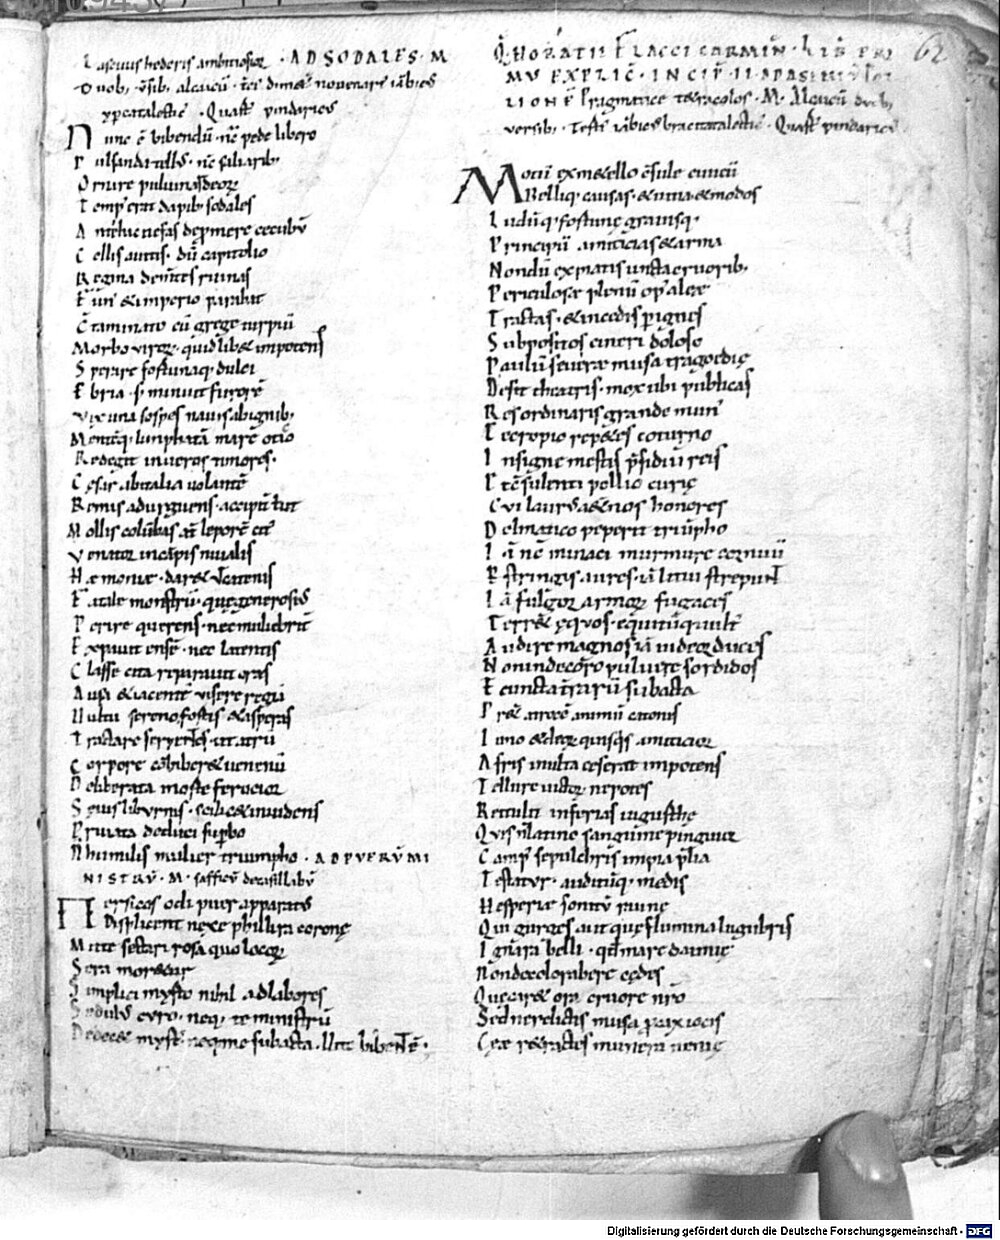 Lasciuis hederis ambitiosior · AD SODALES · M
xpcatalectic · Quasi pindarico
Nunc ē bibendū · nc̄ pede libero
Pulsanda tellꝰ · nc̄ saliarib;
Ornare puluinar deoꝝ
Temp' erat dapib; sodales
Antehac nefas depmere cecubū
Cellis auitis · dū capitolio
Regina dem̄tes ruinas
Fun' & imperio parabat
Ctaminato cū grege turpiū
Morbo uiroꝝ · quidlib& impotens
Sperare fortunaq; dulci
Ebria · s; minuit furorē
Vix una sospes nauis ab ignib;
Mentēq; lymphatā mareotico
Redegit in ueros timores ·
Cesar ab italia uolantē
Remis adurguens · accipit̄ uelut
Mollis colūbas aut leporē citꝰ
Venator in cāpis niualis
Hæmoniæ · dar& ut catenis
Fatale monstrū · quę generosiꝰ
Perire querens · nec muliebrit̄
Expauit ensē · nec latentis
Classe cita reparauit oras
Ausa & iacentē uisere regiā
Uultu sereno fortis & asperas
Tractare serpentes · ut atrū
Corpore cōbiber& uenenū
Deliberata morte ferocior
Seuis liburnis · scilic& inuidens
Priuata deduci supbo
N humilis mulier triumpho · AD PVERV̄ MI
NISTRV̄ · M · safficū decasillabū
Persicos odi puer apparatꝰ
Displicent nexe phillira coronę
Mitte sectari rosa quo locoꝝ
Sera mor&ur
Simplici myrto nihil adlabores
Sedulꝰ curo · neq; te ministrū
Dedec& myrtꝰ neq; me sub arta · Uite bibentē ·
Q̄ HORATII FLACCI CARMIN · LIB PRI
MV EXPLIC̄ · INCIP̄ II AD ASINIV̄ POL
LIONĒ Pragmatice tetracolos · M · Alcaicū duob;
versib; · Tertiꝰ iābicꝰ brac̄tatalectic · Quartꝰ pindaricꝰ
Motū ex m&ello c̄sule ciuicū
Belliq; causas & uitia & modos
Ludūq; fortunę grauisq;
Principū amicicias & arma
Nondū expiatis uncta cruorib;
Periculosæ plenū op' aleæ
Tractas · & incedis p ignes
Subpositos cineri doloso
Paulū seueræ musa tragoedię
Desit theatris · mox ubi publicas
Res ordinaris grande munꝰ
Cecropio rep&es coturno
Insigne mestis p̄sidiū reis
Et c̄sulenti pollio curię
Cui laurꝰ &ernos honores
Delmatico peperit triūpho
Iā nc̄ minaci murmure cornuū
Pstringis aures · iā litui strepunt
Iā fulgor armoꝝ fugaces
Terr& ęquos · equitūq; uultꝰ
Audire magnos iā uideor duces
Non indecoro puluere sordidos
Et cuncta t̄rarū subacta
Præ& atrocē animū catonis
Iuno & deoꝝ quisqs amicior
Afris inulta cesserat impotens
Tellure uictoꝝ nepotes
Rettulit inferias iugurthę
Quis n̄ latino sanguine pinguior
Campꝰ sepulchris impia p̄lia
Testatur · auditūq; medis
Hesperiæ sonitū ruinę
Qui gurges aut quę flumina lugubris
Ignara belli · qd mare dauniæ
Non decolorauere cędes
Quę car& ora cruore nrō
Sed ne relictis musa pcax iocis
Ceæ r&ractes munera nenię